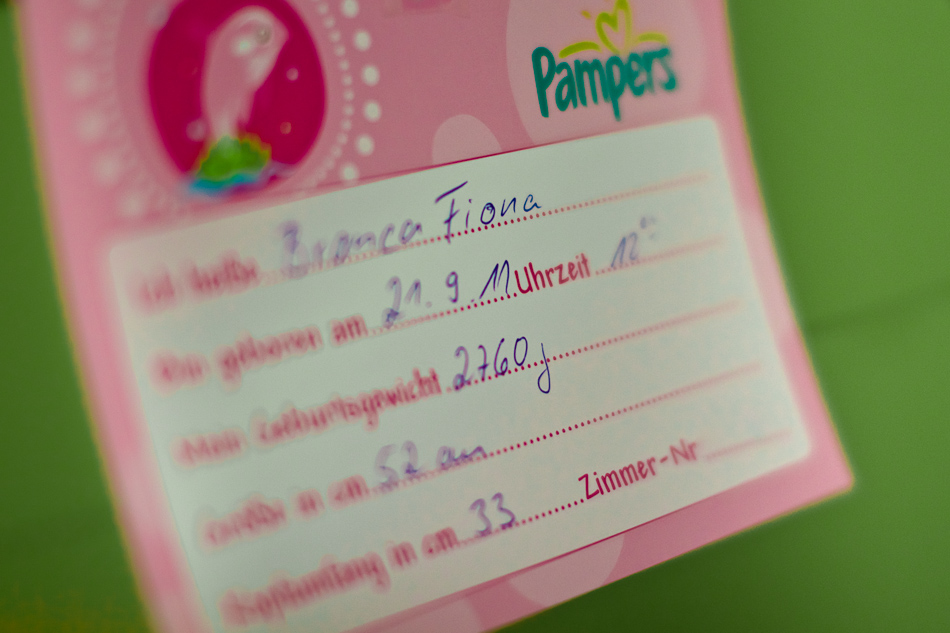 Pampers
Ich heiße Bianca Fiona
Bin geboren am 21.9.11 Uhrzeit 12
Mein Geburtsgewicht 2760 g
Größe in cm 52 cm
Kopfumfang in cm 33 Zimmer-Nr